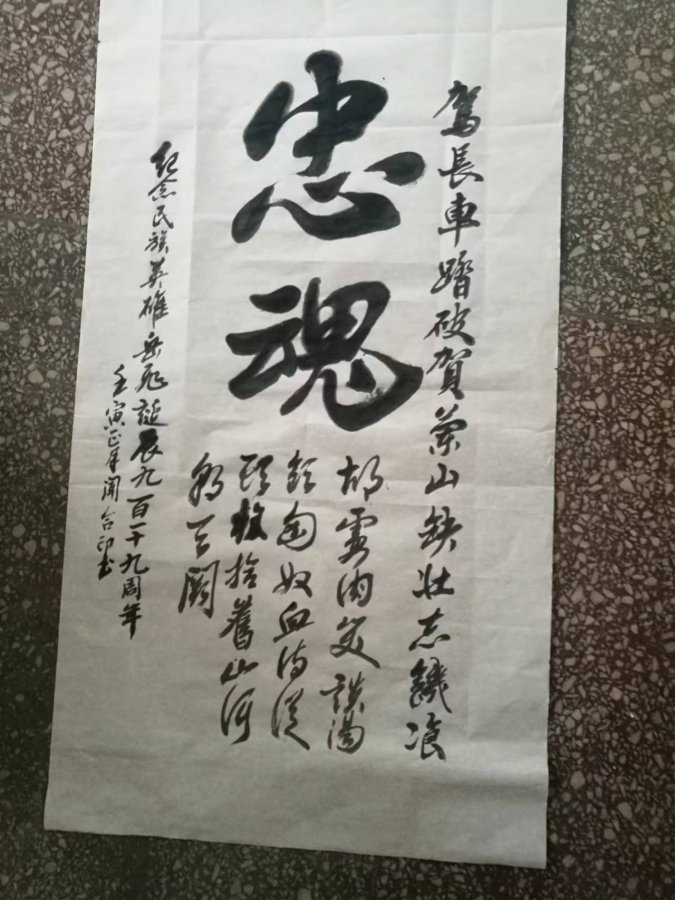 忠魂
駕長車踏破賀蘭山缺壯志饑飡
胡虜肉笑談渴
飲匈奴血待從
頭收拾舊山河
朝天闕
紀念民族英雄岳飛誕辰九百一十九周年
壬寅正月閆合印書